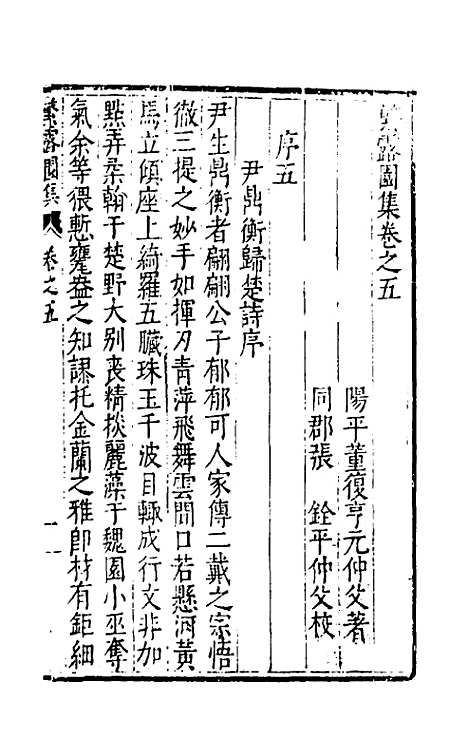 繁露園集卷之五
陽平董復亨元仲父著
同郡張 銓平仲父校
序五
尹鼎衡歸楚詩序
尹生鼎衡者翩翩公子郁郁可人家傳二戴之宗悟
徹三提之妙手如揮刃青萍飛舞雲間口若懸河黃
馬立傾座上綺羅五臟珠玉千波目輙成行文非加
點弄柔翰于楚野大別喪精掞麗藻于魏園小巫奪
氣余等猥慙甕盎之知謬托金蘭之雅即材有鉅細
繁露園集 卷之五 一